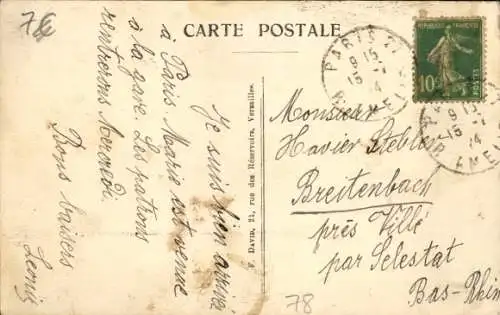 78
CARTE POSTALE
Je suis bien arrivé
à Paris. Marie est venue
à la gare. Les patrons
rentrerons Mercredi.
Bons baisers
A DAVID, 21, rue des Réservoirs, Versailles.
REPUBLIQUE FRANÇAISE
10c
POSTES
PARIS
9 15
15
Monsieur
Xavier
Breitenbach
près Villé
par Selestat
Bas-Rhin
78